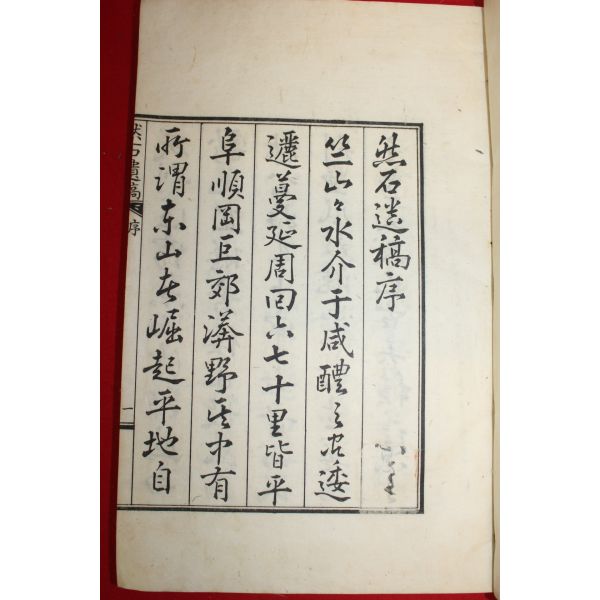 然石遺稿序
竺山々水介于咸醴之間逶
邐蔓延周回六七十里皆平
阜順岡巨郊漭野其中有
所謂東山者崛起平地自
石遺稿
序
一